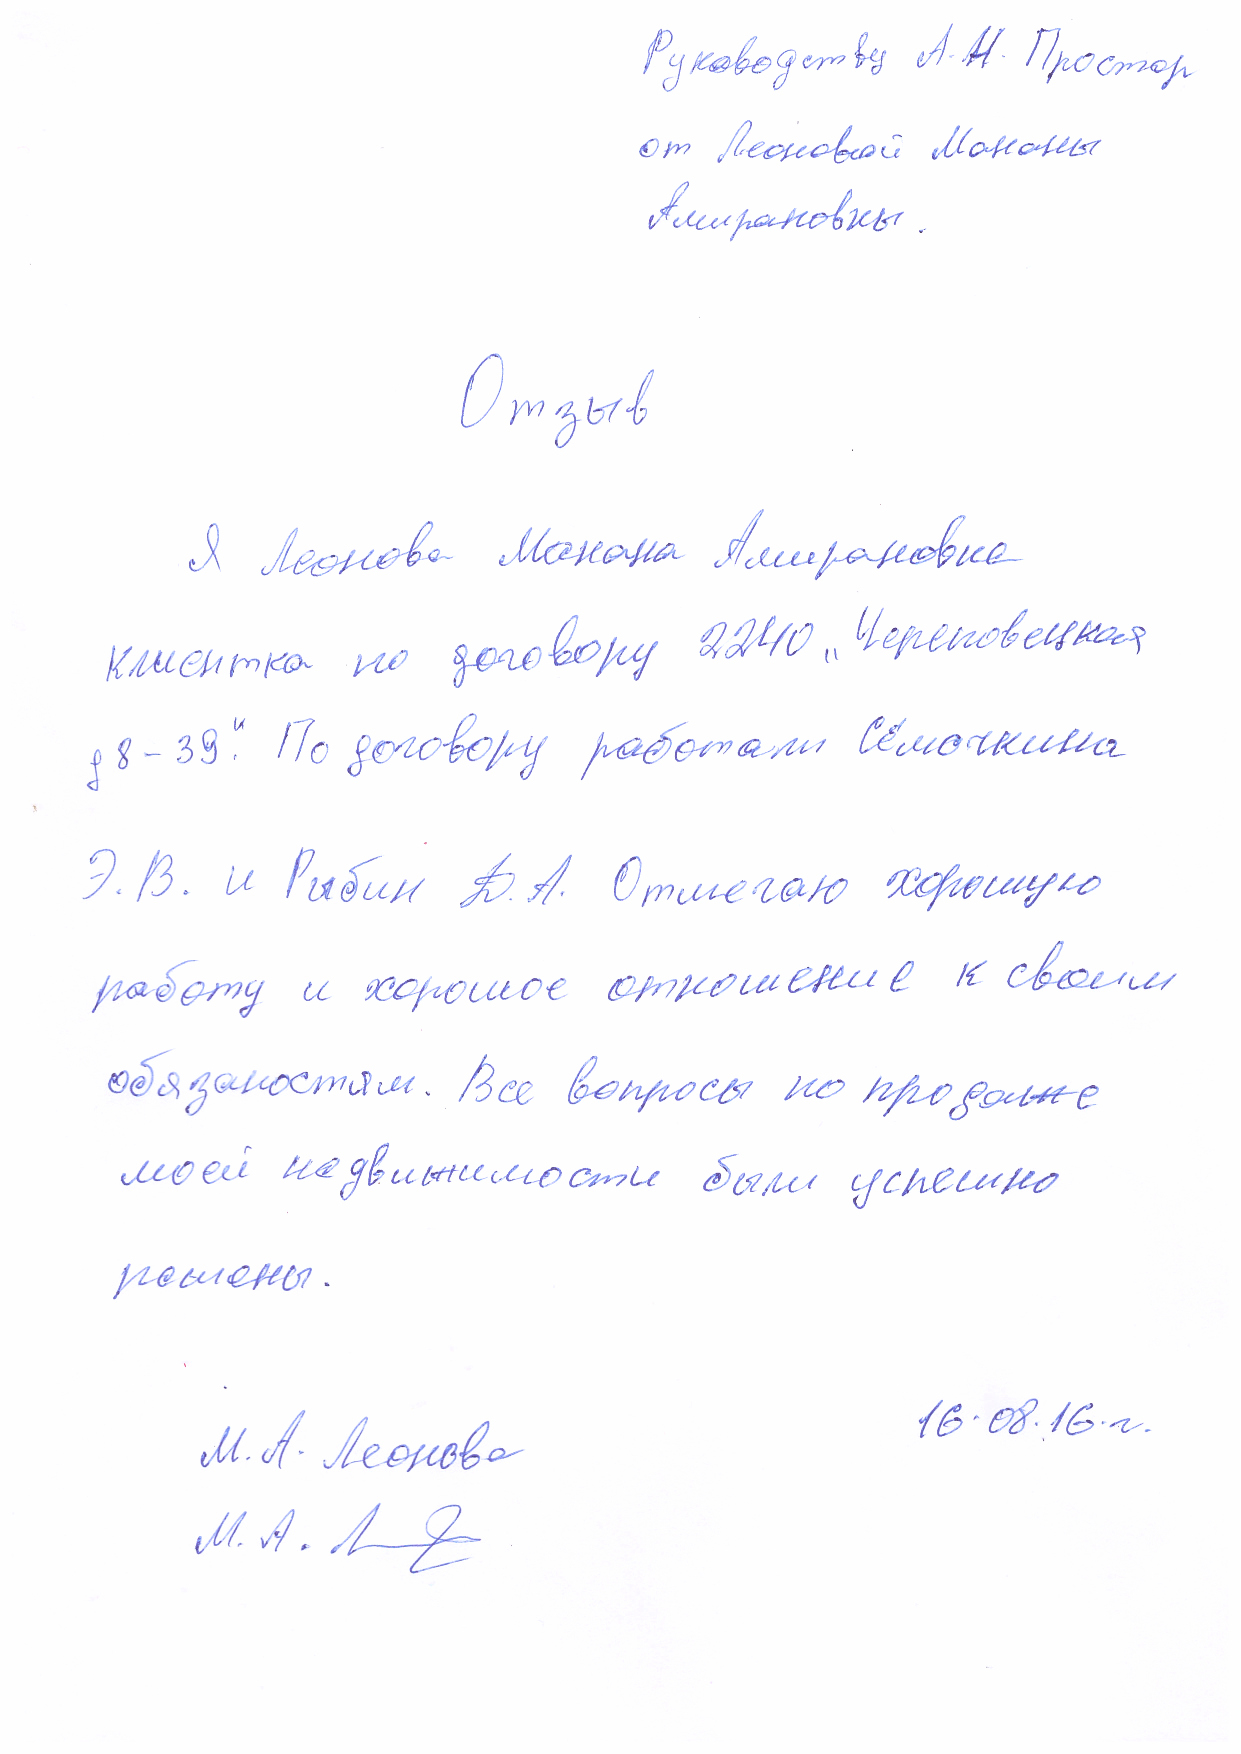 Руководству А.Н. Простор
от Леоновой Мананы
Амирановны.
Отзыв
Я Леонова Манана Амирановна
клиентка по договору 2240 „Череповецкая
д8-39". По договору работали Сёмочкина
Э.В. и Рыбин Д.А. Отмечаю хорошую
работу и хорошое отношение к своим
обязаностям. Все вопросы по продаже
моей недвижимости были успешно
решены.
16.08.16.г.
М.А. Леонова
М.А.